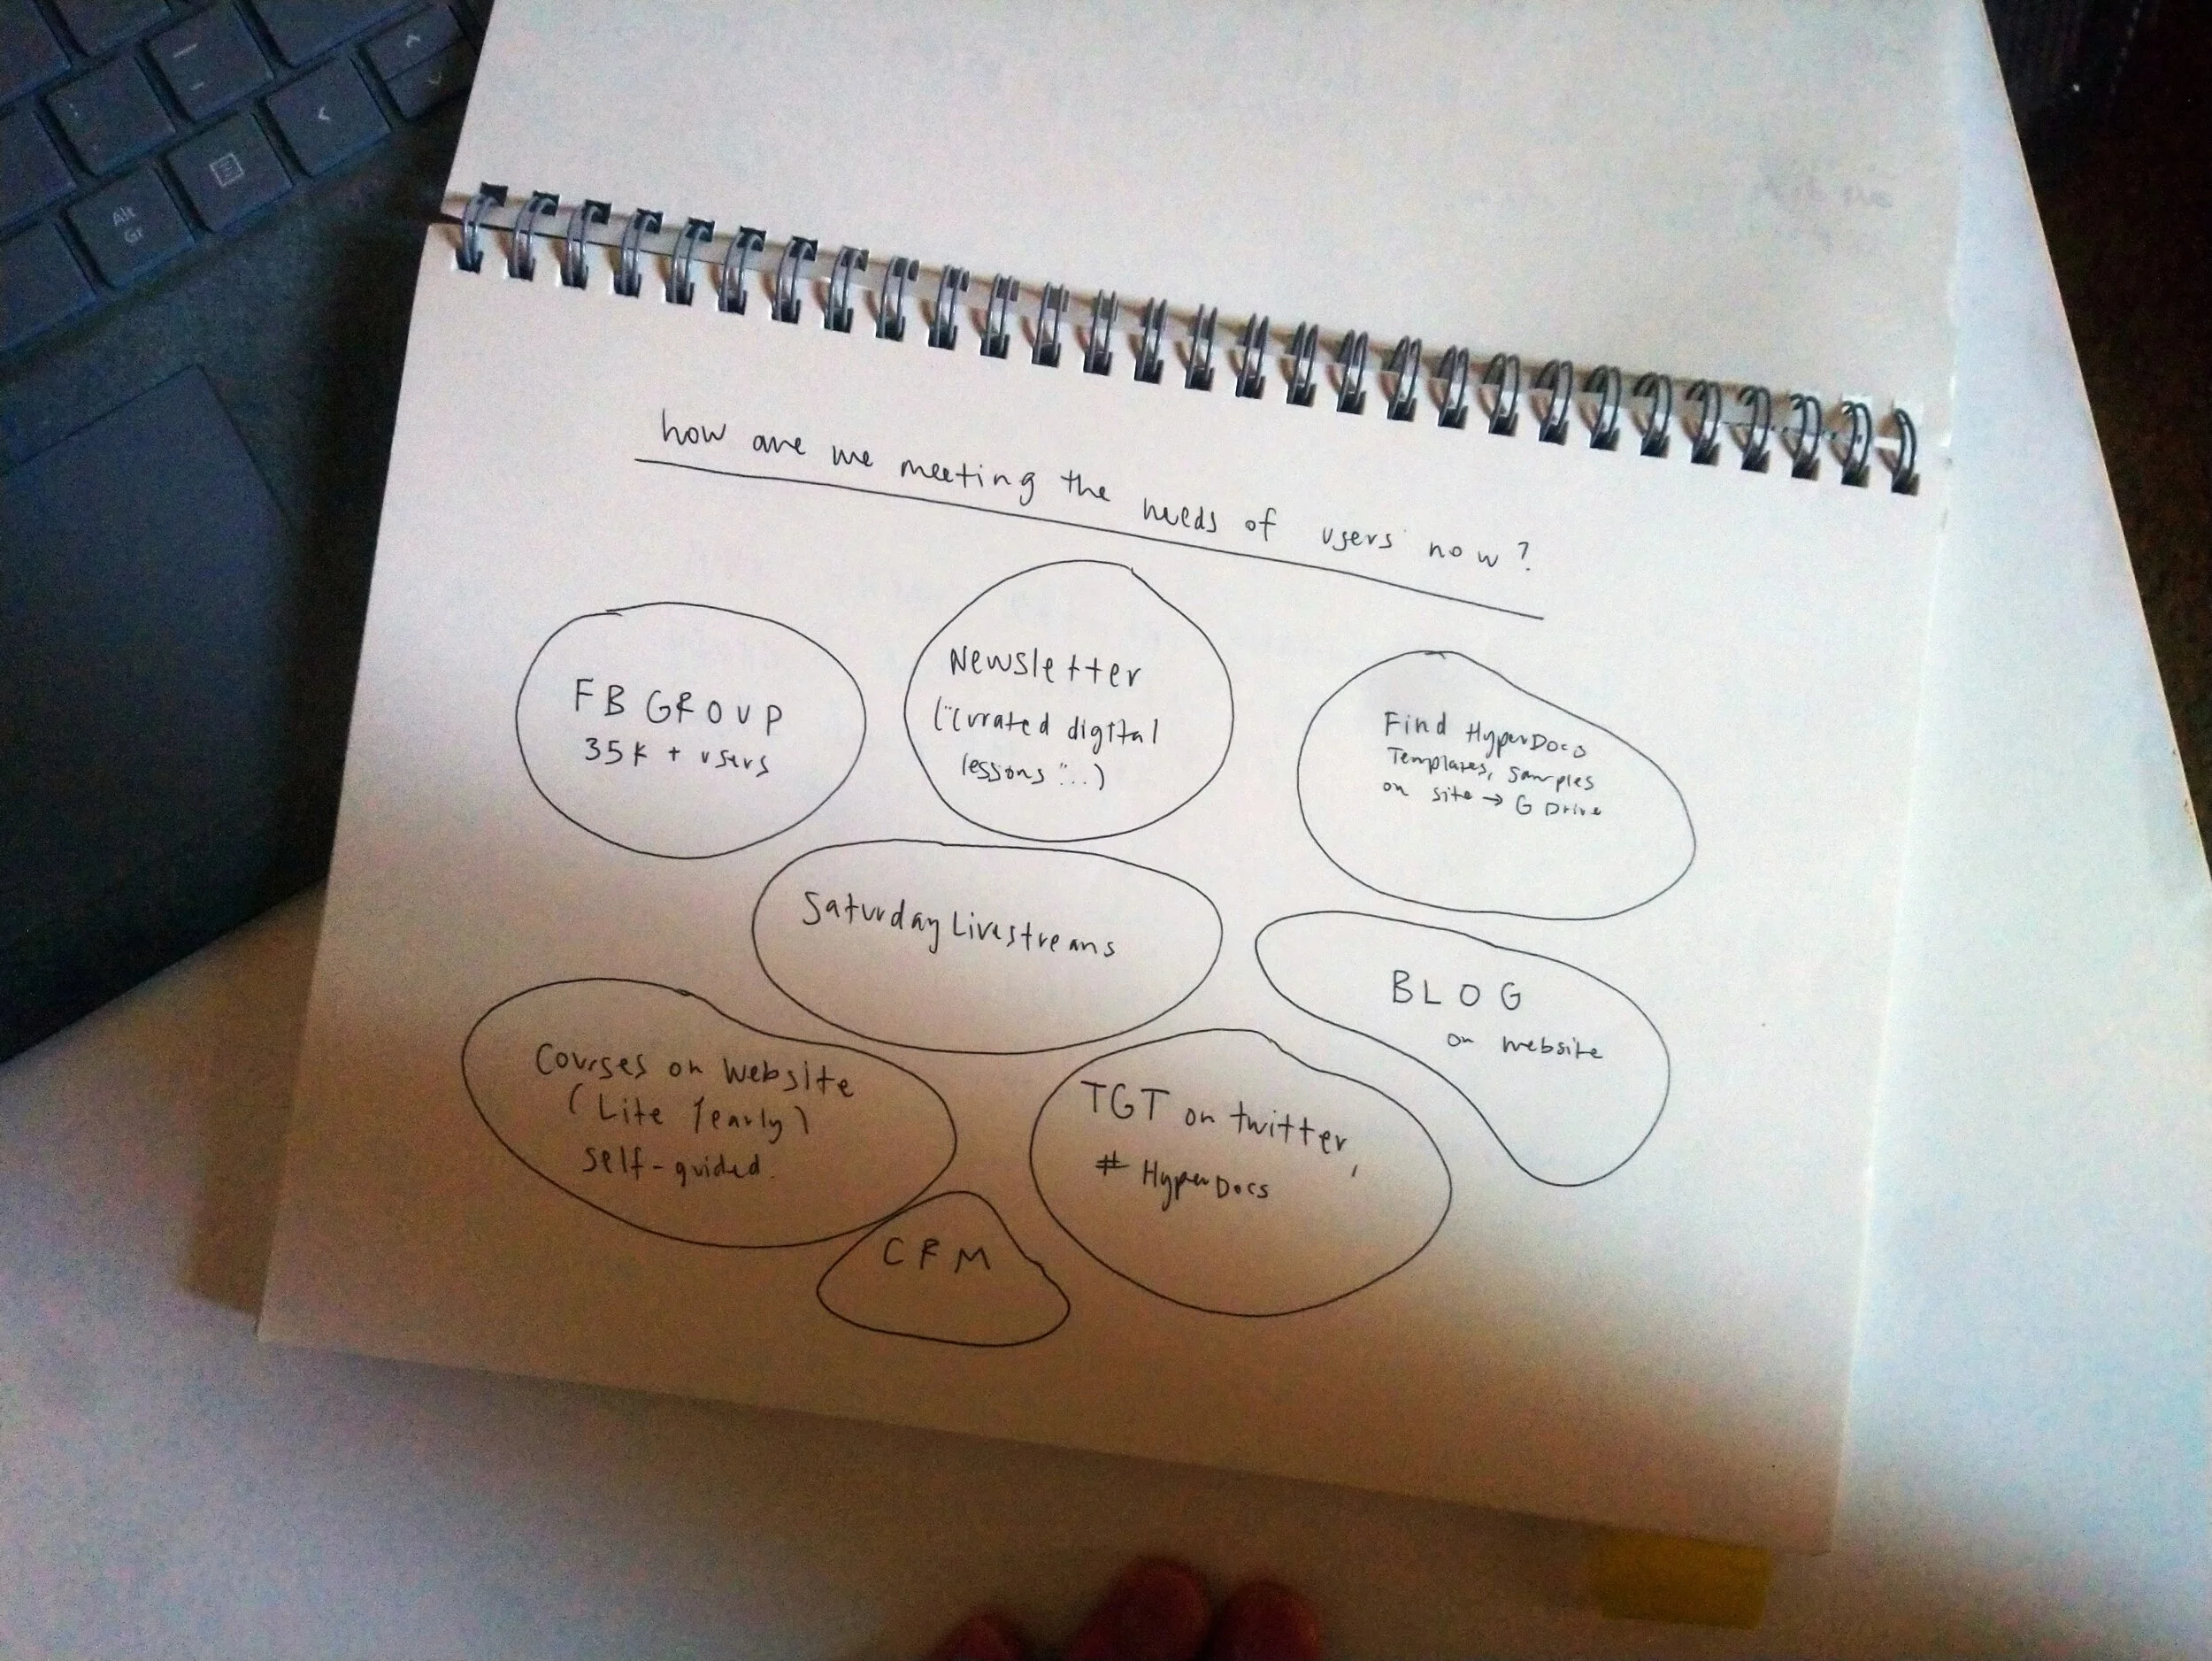 Alt
Gr
how are we meeting the needs of users now?
FB GROUP
35K + users
Newsletter
("curated digital
lessons"...)
Find HyperDocs
Templates, samples
on site → G Drive
Saturday Livestreams
BLOG
on website
Courses on website
(Lite / early)
self-guided.
TGT on twitter,
# HyperDocs
CRM